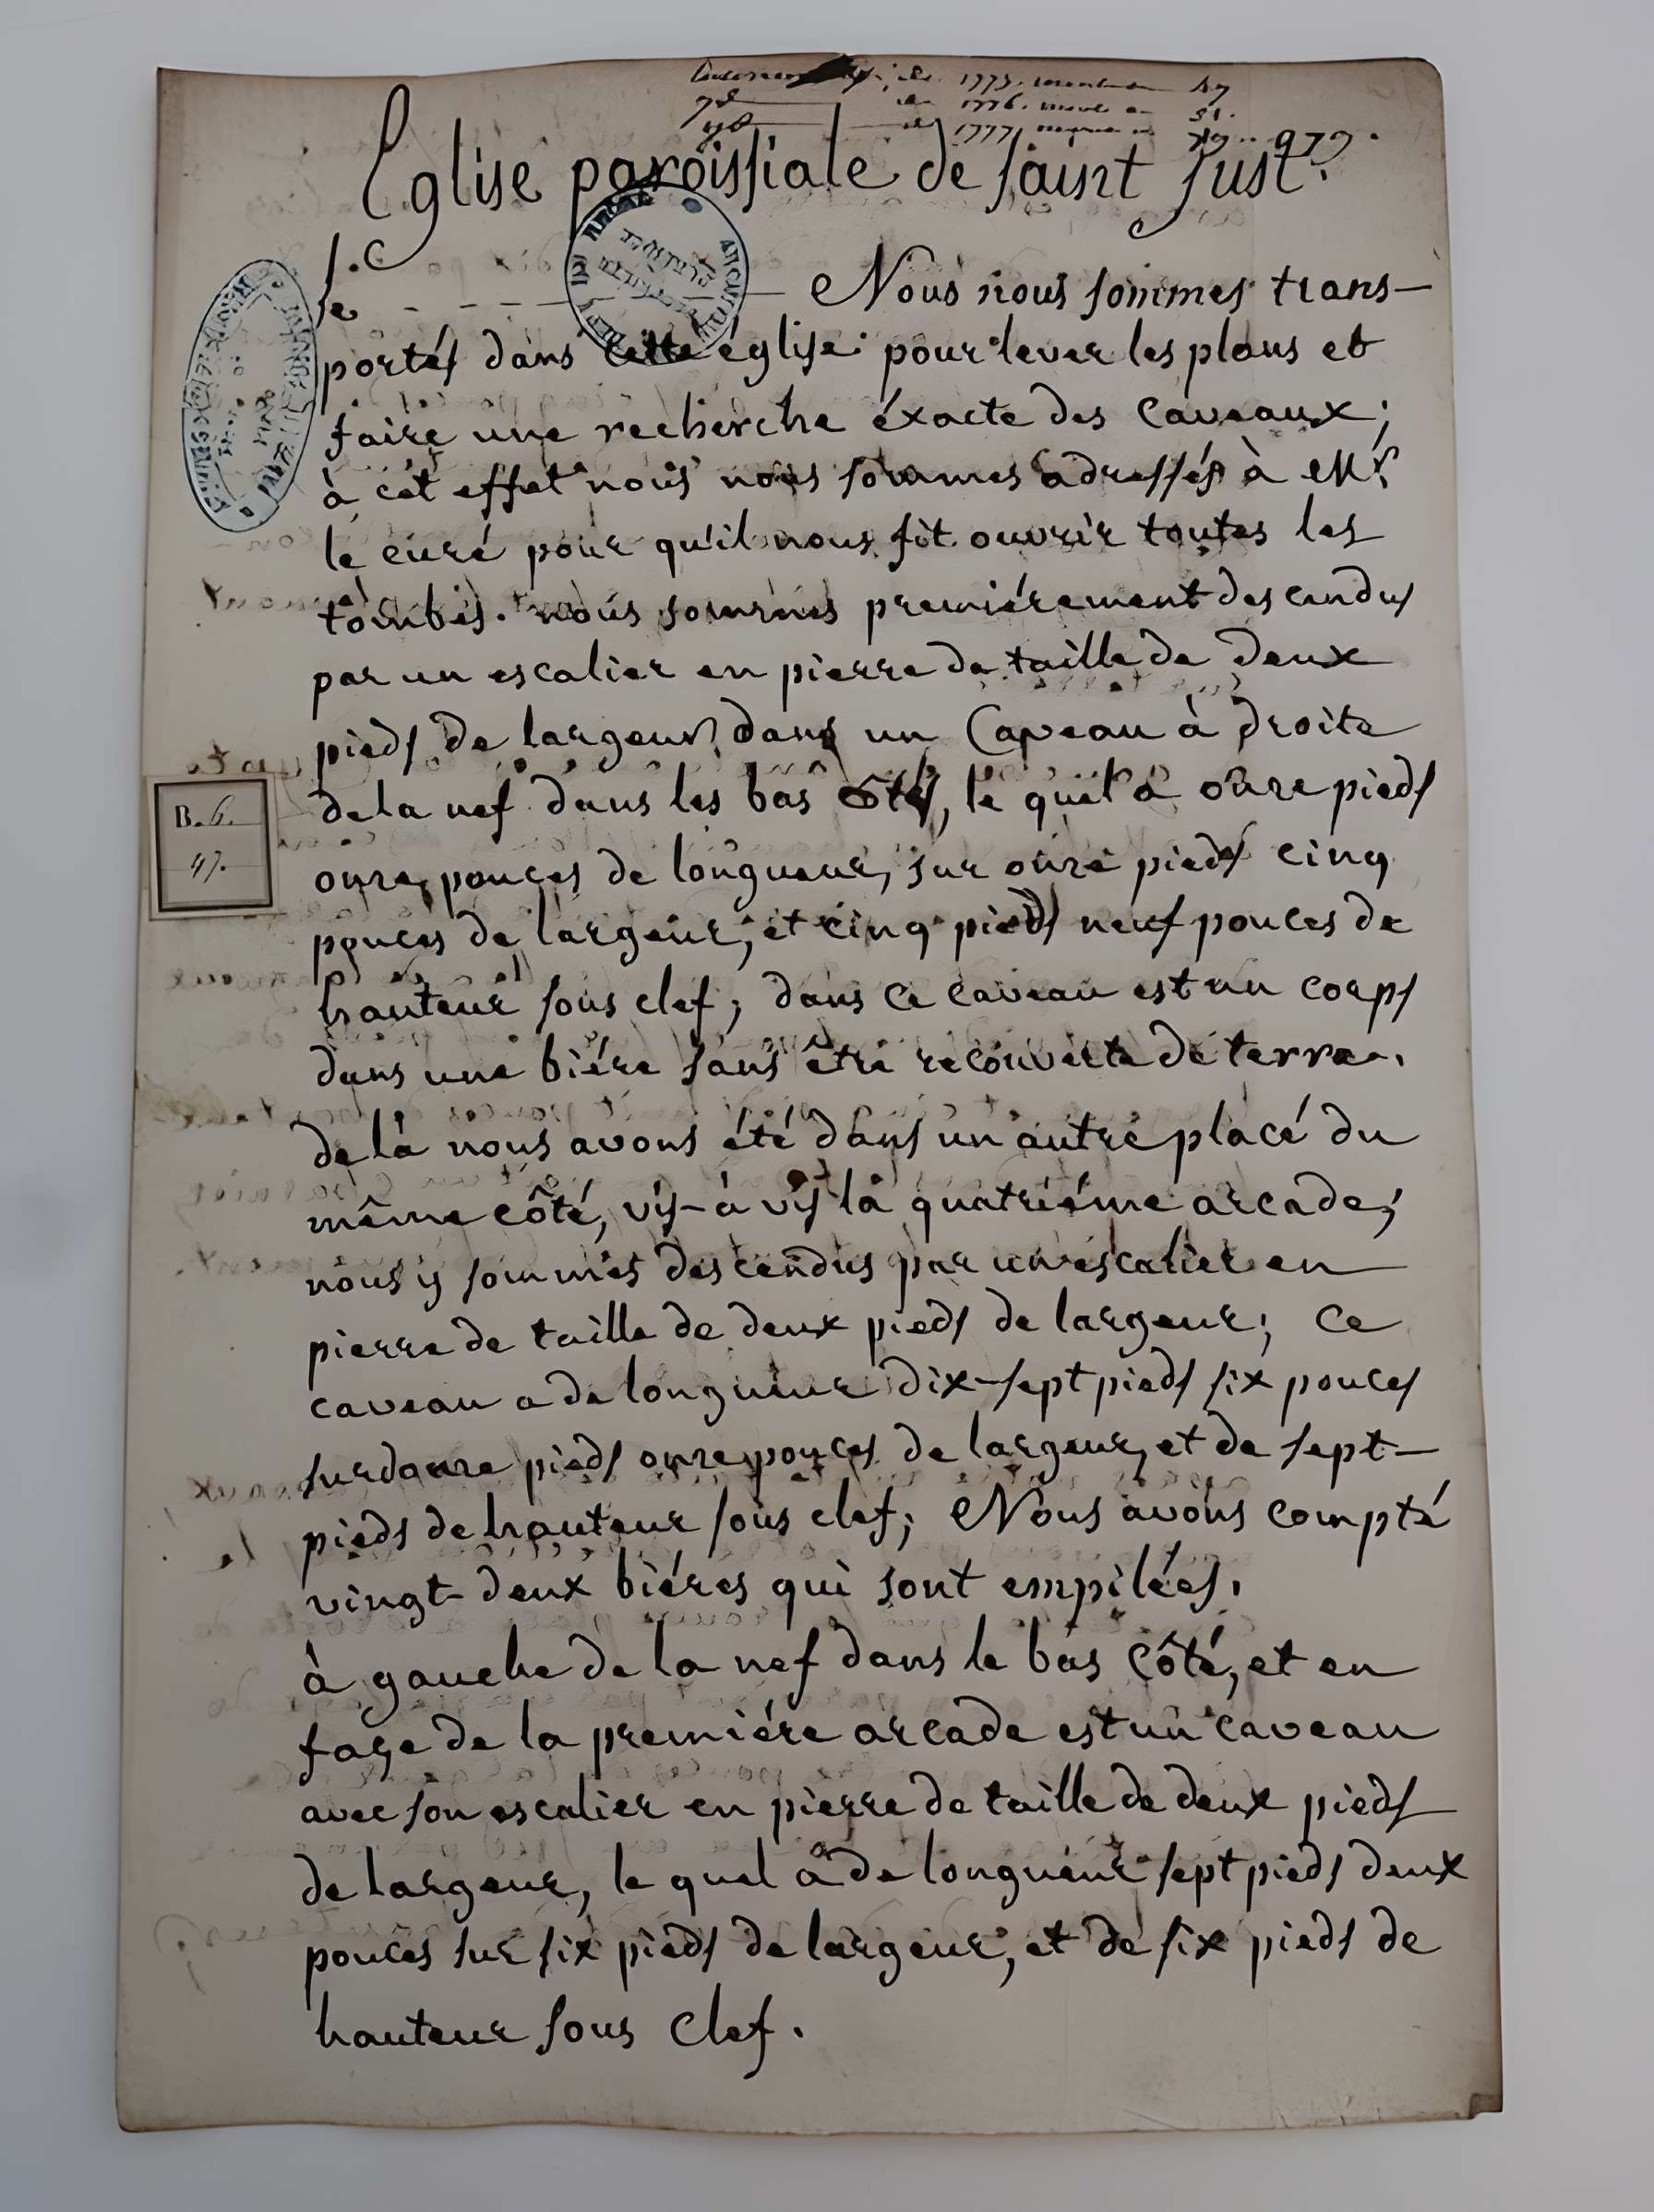 1775.
1776.
1777.
979.
Eglise paroissiale de saint Just.
Nous nous sommes trans-
portés dans cette église pour lever les plans et
faire une recherche éxacte des caveaux;
à cét effet nous nous sommes adressés à Mr.
le curé pour qu'il nous fit ouvrir toutes les
tombes. nous sommes premiérement descendus
par un escalier en pierre de taille de deux
pieds de largeur, dans un Caveau à droite
de la nef dans les bas côtés, le quel a onze pieds
onze pouces de longueur, sur onze pieds cinq
pouces de largeur, et cinq pieds neuf pouces de
hauteur sous clef; dans ce caveau est un corps
dans une biére sans être recouverte de terre.
de là nous avons été dans un autre placé du
même côté, vis-à vis la quatriéme arcade;
nous y sommes descendus par un escalier en
pierre de taille de deux pieds de largeur; ce
caveau a de longueur dix-sept pieds six pouces
sur douze pieds onze pouces de largeur, et de sept-
pieds de hauteur sous clef; Nous avons compté
vingt-deux biéres qui sont empilées.
à gauche de la nef dans le bas côté, et en
façe de la premiére arcade est un caveau
avec son escalier en pierre de taille de deux pieds
de largeur, le quel a de longueur sept pieds deux
pouces sur six pieds de largeur, et de six pieds de
hauteur sous clef.
B. 6.
47.